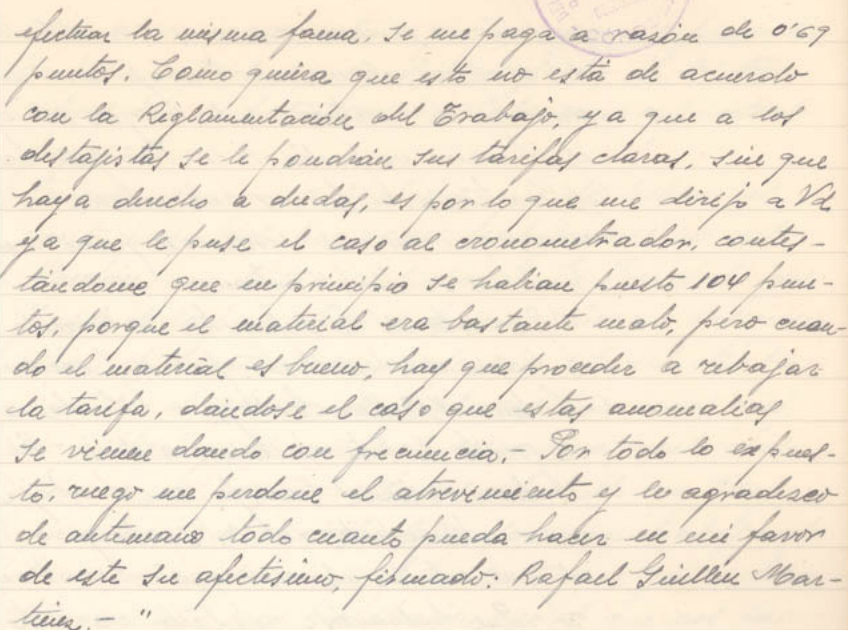 efectuar la misma faena. Se me paga a razón de 0'69
puntos. Como quiera que esto no está de acuerdo
con la Reglamentación del Trabajo, ya que a los
destajistas se le pondrán sus tarifas claras, sin que
haya derecho a dudas, es por lo que me dirijo a Vd
ya que le puse el caso al cronometrador, contes-
tándome que en principio se habian puesto 104 pun-
tos, porque el material era bastante malo, pero cuan-
do el material es bueno, hay que proceder a rebajar
la tarifa, dándose el caso que estas anomalias
se vienen dando con frecuencia.- Por todo lo expues-
to, ruego me perdone el atrevimiento y le agradezco
de antemano todo cuanto pueda hacer en mi favor
de este su afectisimo, firmado: Rafael Guillen Mar-
tinez.- "